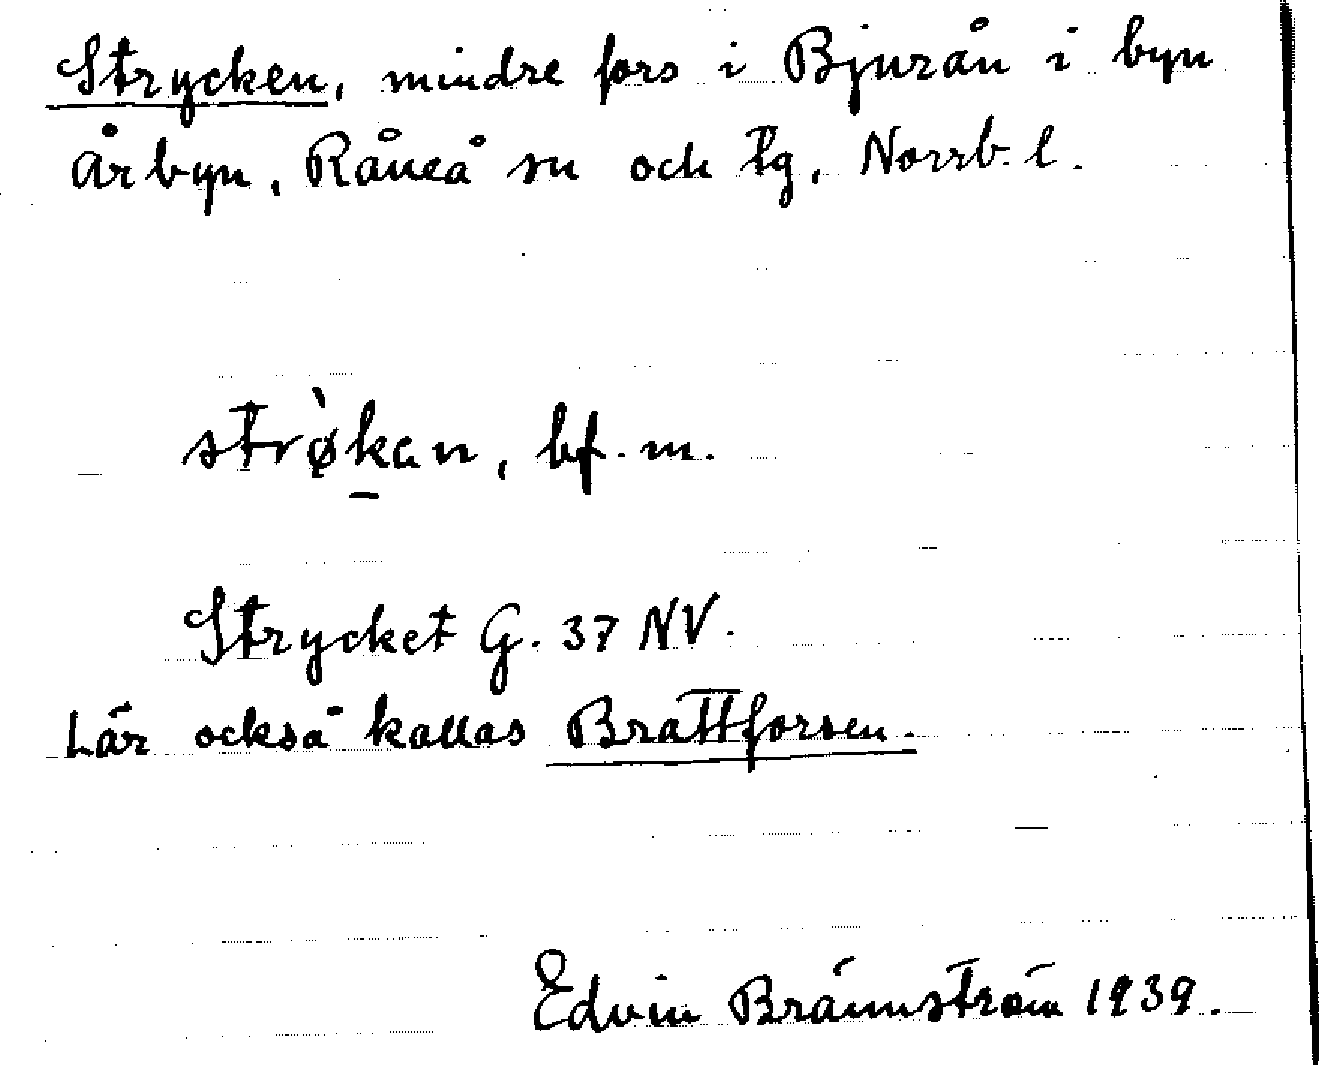 Strycken, mindre fors i Bjurån i byn
Årbyn, Råneå sn och tg, Norrb. l.
strø̀kan, bf. m.
Strycket G. 37 NV.
Lär också kallas Brattforsen.
Edvin Brännström 1939.